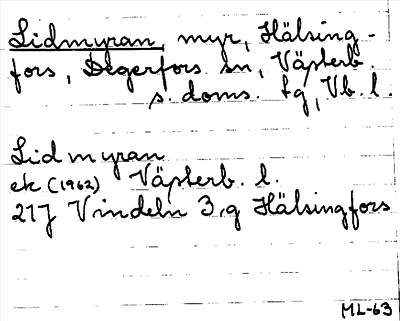 Lidmyran, myr, Hälsing-
fors, Degerfors sn, Västerb.
s. doms. tg, Vb. l.
Lidmyran
ek (1962) Västerb. l.
21J Vindeln 3 g Hälsingfors
ML-63